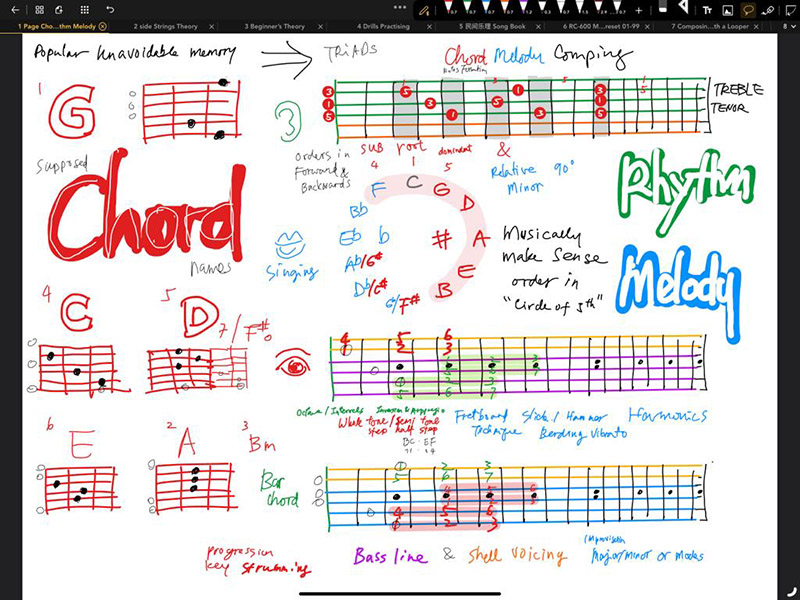 1 Page Cho...thm Melody
2 side Strings Theory
3 Beginner's Theory
4 Drills Practising
5 民间乐理 Song Book
6 RC-600 M...reset 01-99
7 Composin...th a Looper
Popular Unavoidable memory
TRIADS
Chord Melody Comping
1
G
3
TREBLE
TENOR
Supposed
Chord
names
Orders in
Forward &
Backwards
sub root dominant &
4 1 5
Relative 90°
Minor
F C G D
Bb
Eb b # A
Ab/G#
E
Db/C#
B
G/F#
Singing
Musically
Make Sense
order in
"Circle of 5th"
Rhythm
Melody
4 C
5 D
7/F#
4 5 6
1 2 3
Octave/Intervals
Whole tone/Semi Tone
step half step
BC EF
Fretboard
Technique
Slide/Hammer
Bending Vibrato
Harmonics
6 E
2 A
3 Bm
Bar
chord
4 5 6
1 2 3
progression
key strumming
Bass line & Shell Voicing
Improvisation
Major/minor or modes